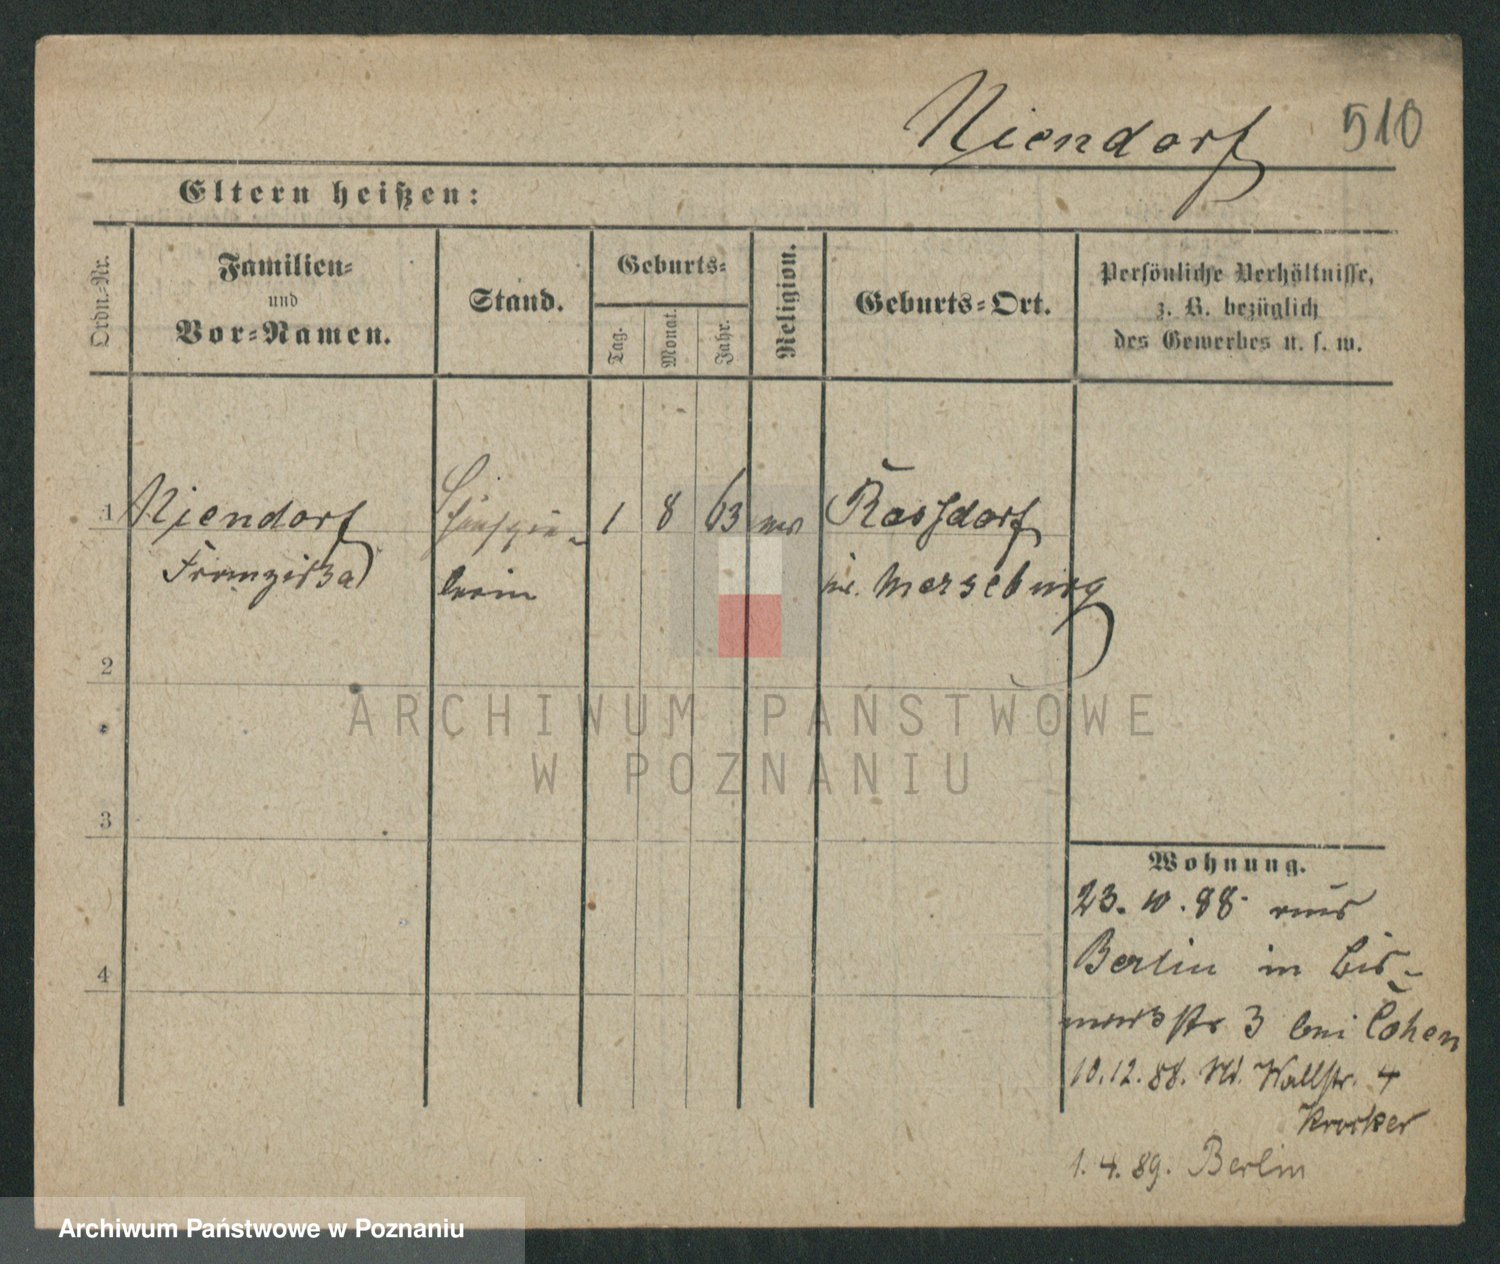 Niendorf 510
Eltern heißen:
Ordn.-Nr.
Familien-
und
Vor-Namen.
Stand.
Geburts-
Tag.
Monat.
Jahr.
Religion.
Geburts-Ort.
Persönliche Verhältnisse,
z. B. bezüglich
des Gewerbes u. s. w.
1 Niendorf Schauspie- 1 8 63 Rossdorf
Franziska lerin Merseburg
2
3
4
ARCHIWUM PAŃSTWOWE
W POZNANIU
Wohnung.
23. 10. 88. aus
Berlin in Bis-
markstr 3 bei Cohen
10.12.88. Wallstr. 4
Krocker
1. 4. 89. Berlin
Archiwum Państwowe w Poznaniu